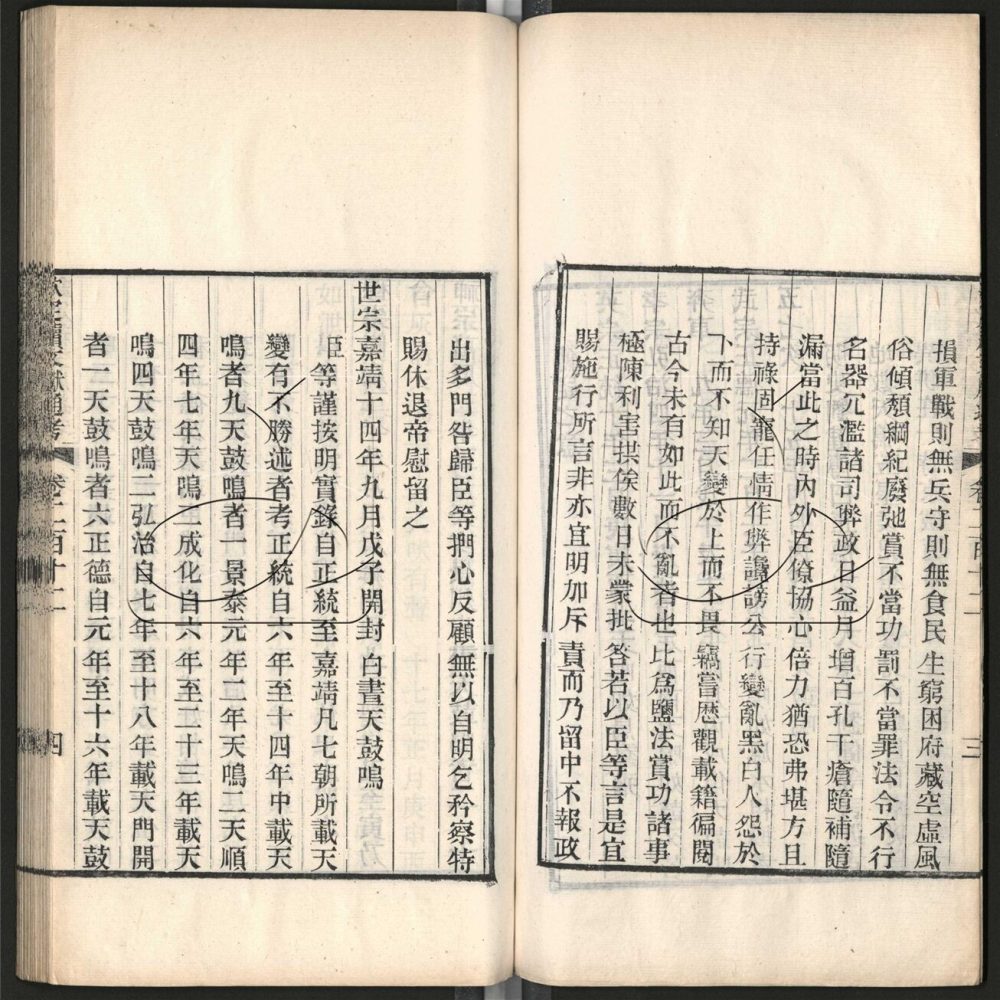 損軍戰則無兵守則無食民生窮困府藏空虛風
俗傾頹綱紀廢弛賞不當功罰不當罪法令不行
名器冗濫諸司弊政日益月增百孔千瘡隨補隨
漏當此之時內外臣僚協心倍力猶恐弗堪方且
持祿固寵任情作弊讟謗公行變亂黑白人怨於
下而不知天變於上而不畏竊嘗歷觀載籍徧閱
古今未有如此而不亂者也比爲鹽法賞功諸事
極陳利害拱俟數日未蒙批答若以臣等言是宜
賜施行所言非亦宜明加斥責而乃留中不報政
三
出多門咎歸臣等捫心反顧無以自明乞矜察特
賜休退帝慰留之
世宗嘉靖十四年九月戊子開封白晝天鼓鳴
臣等謹按明實錄自正統至嘉靖凡七朝所載天
變有不勝述者考正統自六年至十四年中載天
鳴者九天鼓鳴者一景泰元年二年天鳴二天順
四年七年天鳴二成化自六年至二十三年載天
鳴四天鼓鳴二弘治自七年至十八年載天門開
者一天鼓鳴者六正德自元年至十六年載天鼓
欽定續文獻通考 卷二百十二 四